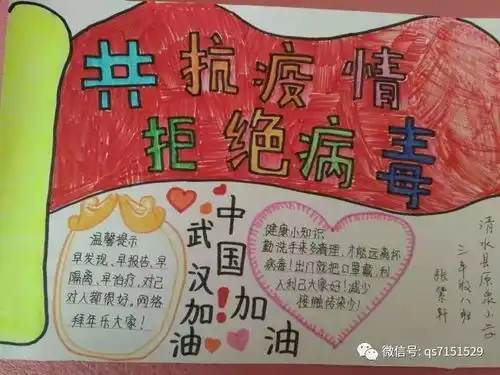 共抗疫情
拒绝病毒
温馨提示
早发现、早报告、早
隔离、早治疗，对己
对人都很好。网络
拜年乐大家！
武汉加油
中国加油
！
健康小知识
勤洗手来多清理，才能远离坏
病毒！出门就把口罩戴，利
人利己大家好！减少
接触传染少！
清水县原泉小学
三年级八班
张紫轩
微信号: qs7151529